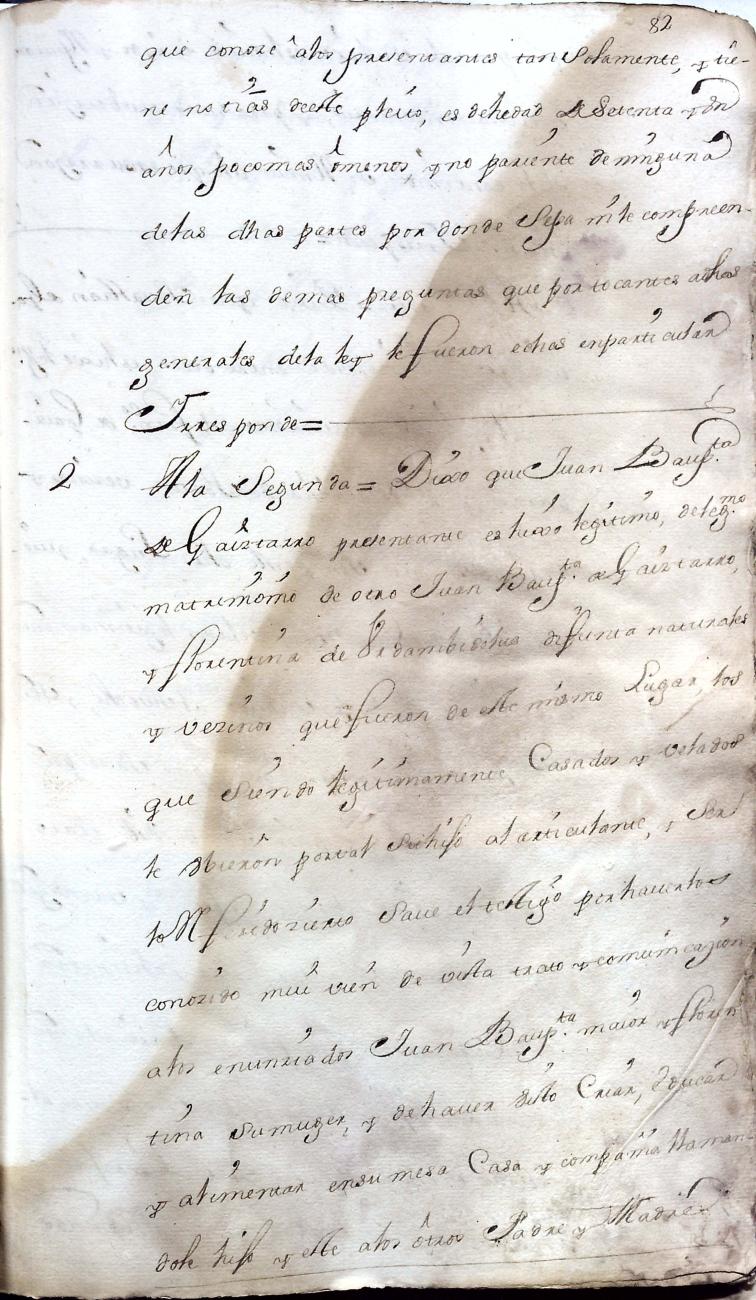 82
que conoze alos presentantes tan Solamente, y tie-
ne notizias deeste pleito, es dehedad de Setenta y un
años pocomas ômenos y no pariente deninguna
delas dhas partes por donde Sepa nile compreen-
den las demas preguntas que por tocantes alas
generales dela ley le fueron echas enparticular
Yrresponde=
2 Ala Segunda= Dixo que Juan Baup.ta
de Gaiztarro presentante es hixo legitimo, deleg.mo
matrimonio de otro Juan Baup.ta de Gaiztarro,
y florentina de Urdambidelus difunta naturales
y vezinos que fueron de este mismo Lugar, los
que Siendo legitimamente Casados y velados
le obieron portal Suhijo alarticulante, y Ser
lo Referido zierto Save el testigo porhaverlos
conozido mui vien de vista trato y comunicazion
alos enunziados Juan Baup.ta maior y floren
tina Sumuger, y dehaver visto Criar, educar
y alimentar ensumesa Casa y compañia llaman
dole hijo y este alos ôtros Padre y Madre